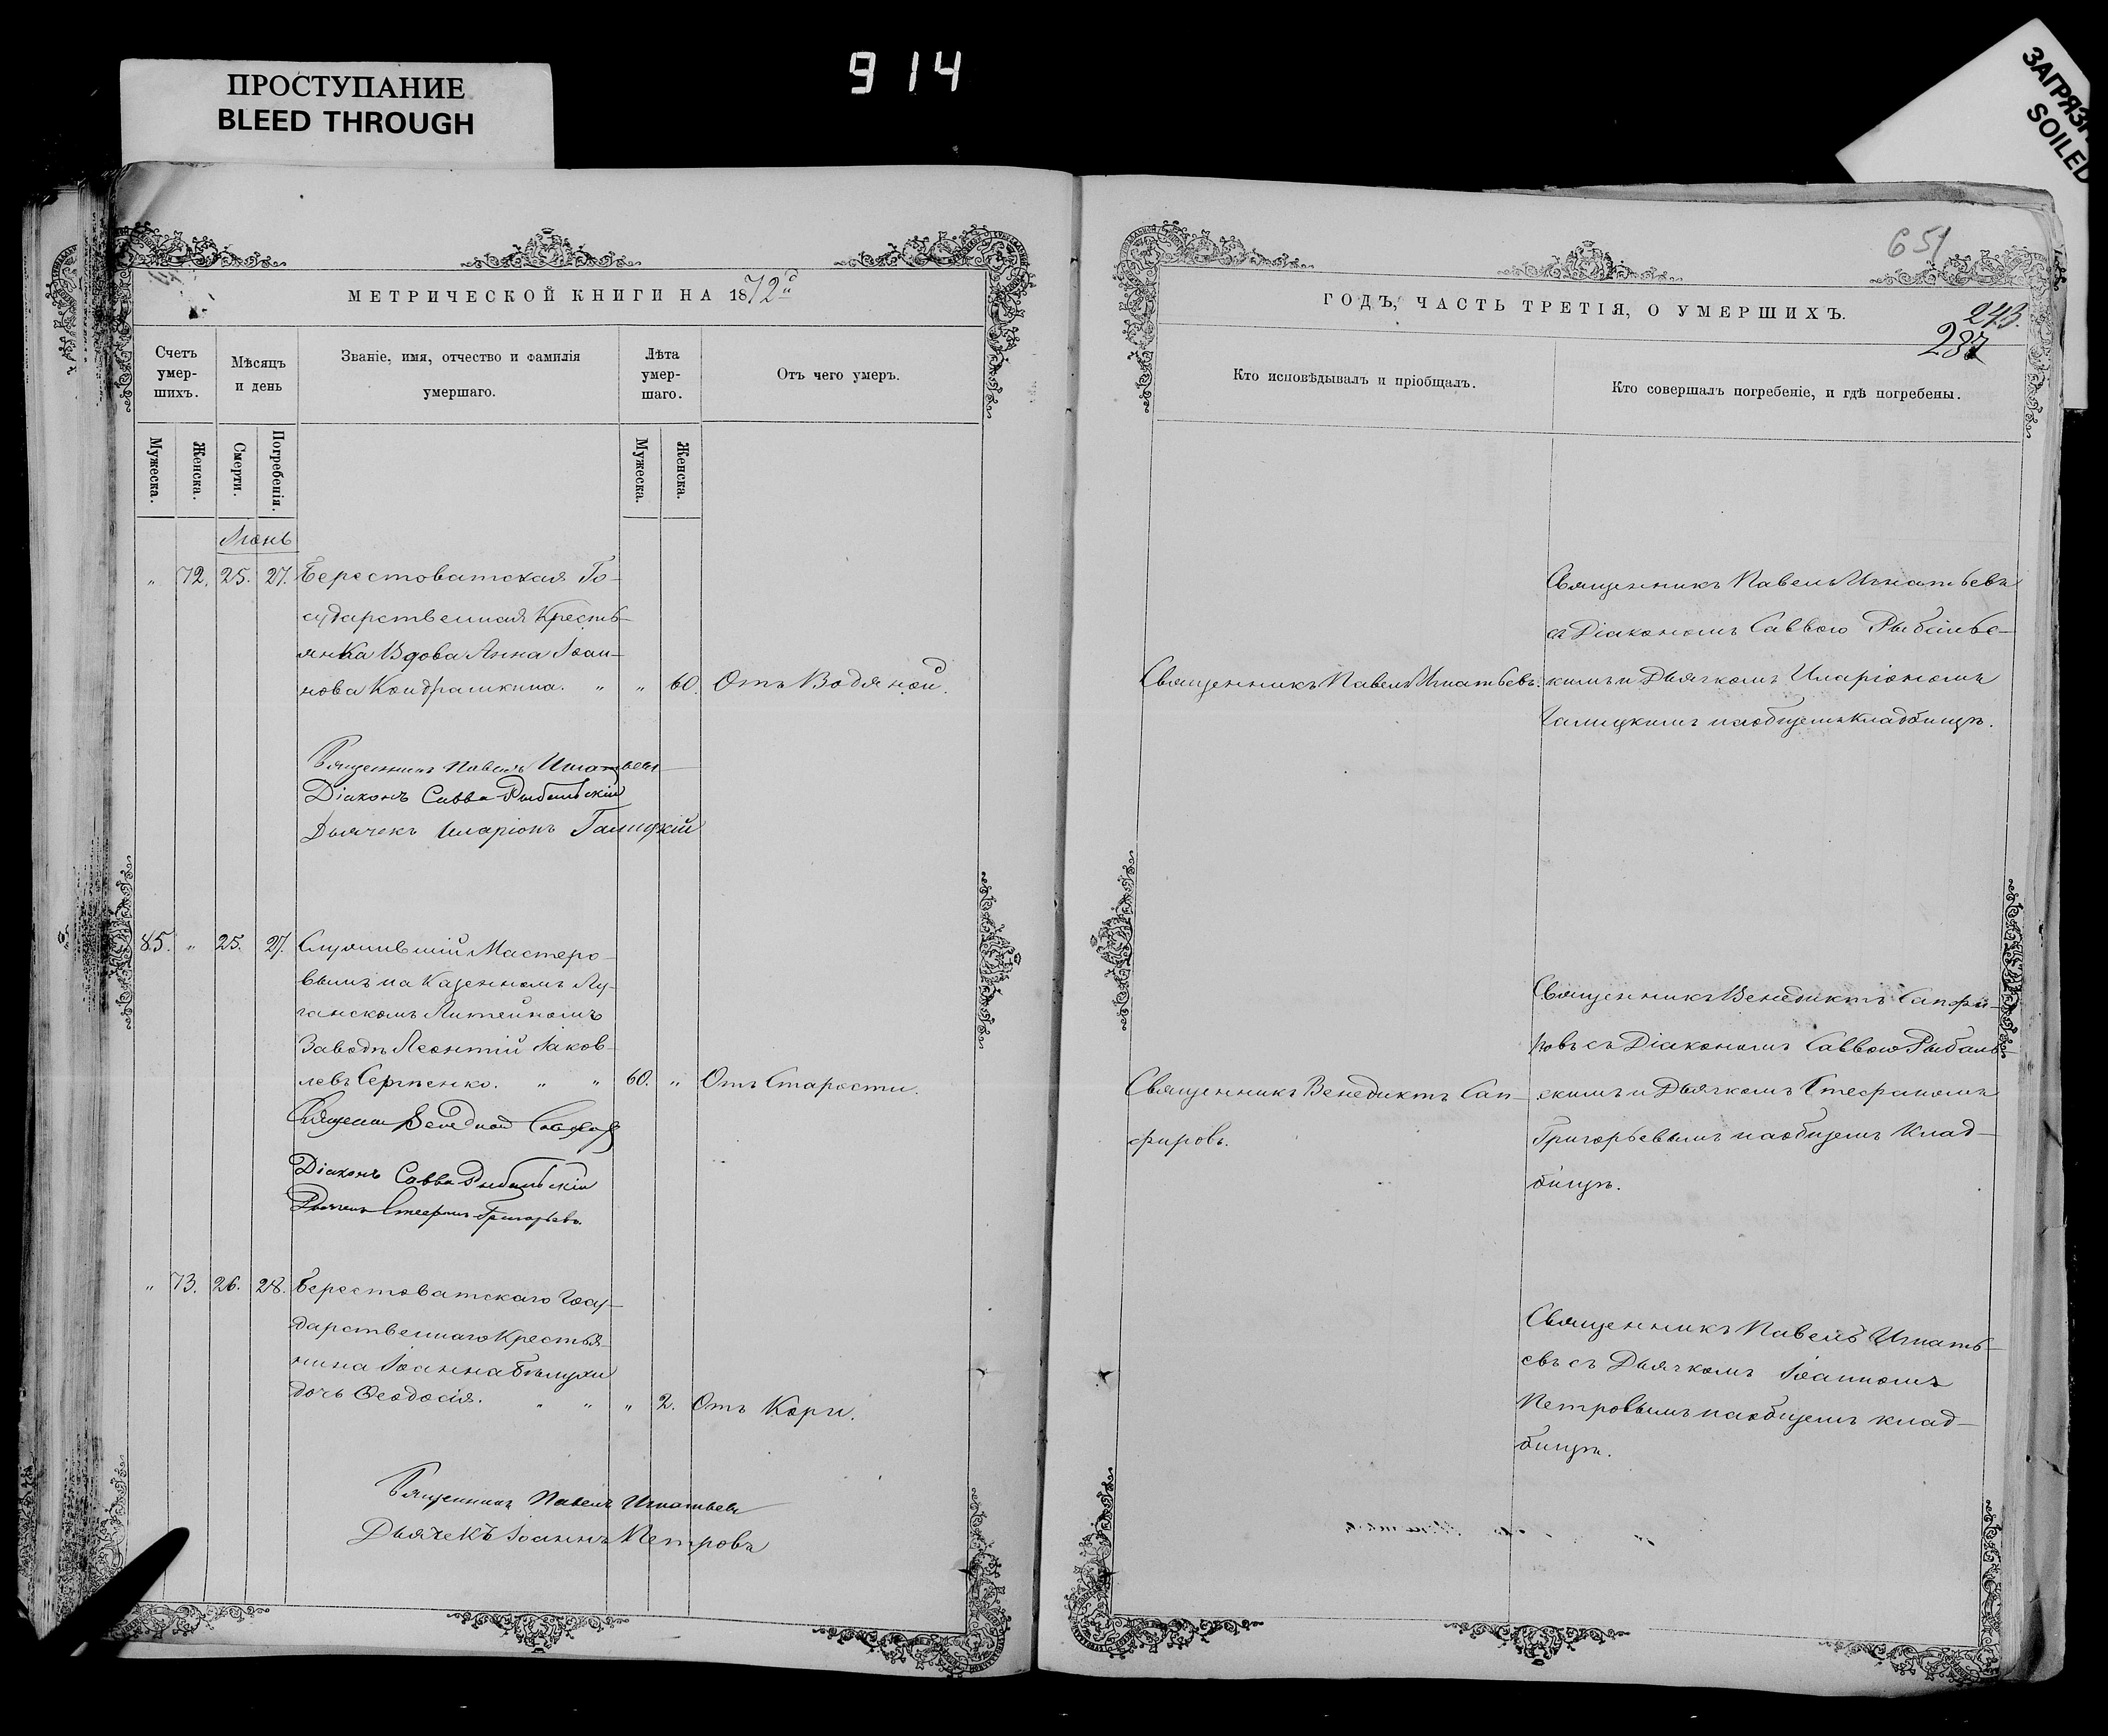 ПРОСТУПАНИЕ
BLEED THROUGH
914
ЗАГРЯЗН
SOILED
МЕТРИЧЕСКОЙ КНИГИ НА 1872й
Счетъ умер-шихъ.
Мѣсяцъ и день
Званіе, имя, отчество и фамилія умершаго.
Лѣта умер-шаго.
Отъ чего умеръ.
Мужеска.
Женска.
Смерти.
Погребенія.
Мужеска.
Женска.
Іюнь
„ 72. 25. 27. Берестоватская Го-
сударственная Кресть-
янка Вдова Анна Іоан-
нова Кондрашкина. „ „ 60. Отъ Водяной.
Священникъ Павелъ Игнатьевъ
Діаконъ Савва Рыбальскій
Дьячекъ Иларіонъ Галицкій
85. „ 25. 27. Служившій Мастеро-
вымъ на Казенномъ Лу-
ганскомъ Литейномъ
Заводѣ Леонтій Іаков-
левъ Сергѣенко. „ „ 60. „ Отъ Старости.
Діаконъ Савва Рыбальскій
Дьячекъ Стефанъ Григорьевъ.
„ 73. 26. 28. Берестоватскаго Госу-
дарственнаго Крестья-
нина Іоанна Бѣлухи
дочь Ѳеодосія. „ „ „ 2. Отъ Кори.
Священникъ Павелъ Игнатьевъ
Дьячекъ Іоаннъ Петровъ
651
ГОДЪ, ЧАСТЬ ТРЕТІЯ, О УМЕРШИХЪ.
243.
287
Кто исповѣдывалъ и пріобщалъ.
Кто совершалъ погребеніе, и гдѣ погребены.
Священникъ Павелъ Игнатьевъ
съ Діакономъ Саввою Рыбальс-
Священникъ Павелъ Игнатьевъ. кимъ и Дьячкомъ Иларіономъ
Галицкимъ на общемъ кладбищѣ.
Священникъ Венедиктъ Сапфи-
ровъ съ Діакономъ Саввою Рыбаль-
Священникъ Венедиктъ Сап- скимъ и Дьячкомъ Стефаномъ
фировъ. Григорьевымъ на общемъ клад-
бищѣ.
Священникъ Павелъ Игнать-
евъ съ Дьячкомъ Іоанномъ
Петровымъ на общемъ клад-
бищѣ.